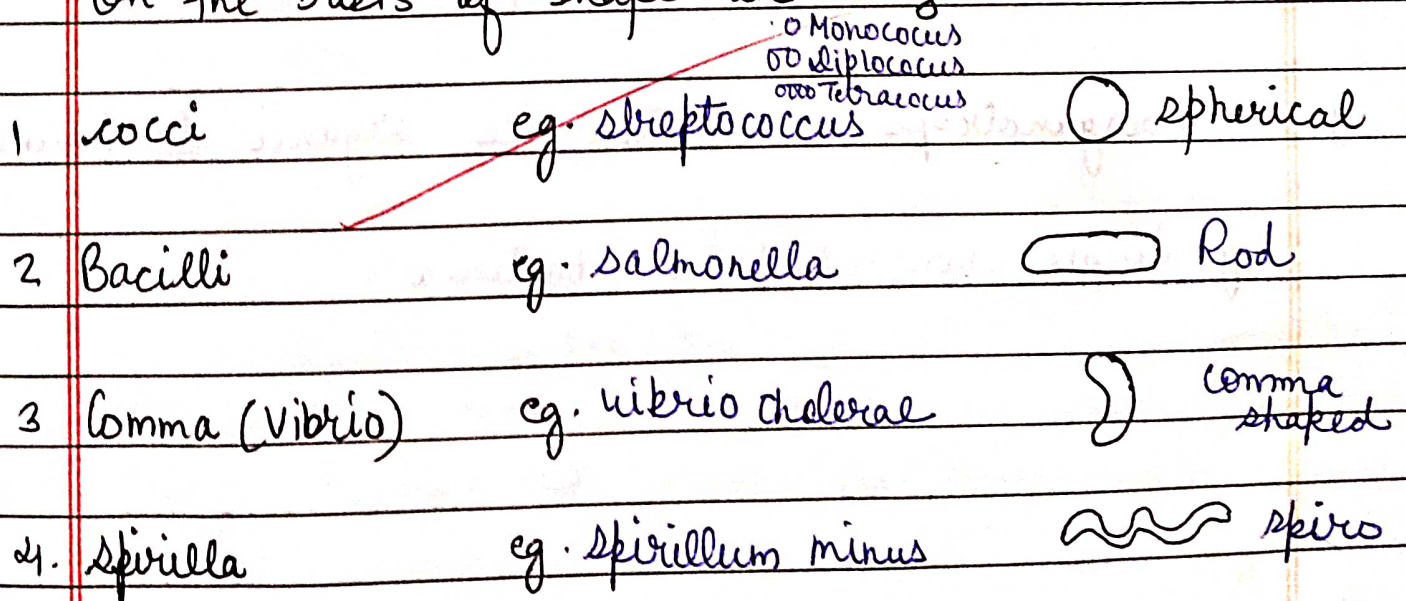 on the basis of shape
Monococus
Diplococus
Tetracocus
1 cocci eg. streptococcus spherical
2 Bacilli eg. salmonella Rod
3 Comma (Vibrio) eg. vibrio cholerae comma shaped
4. spirilla eg. spirillum minus spiro